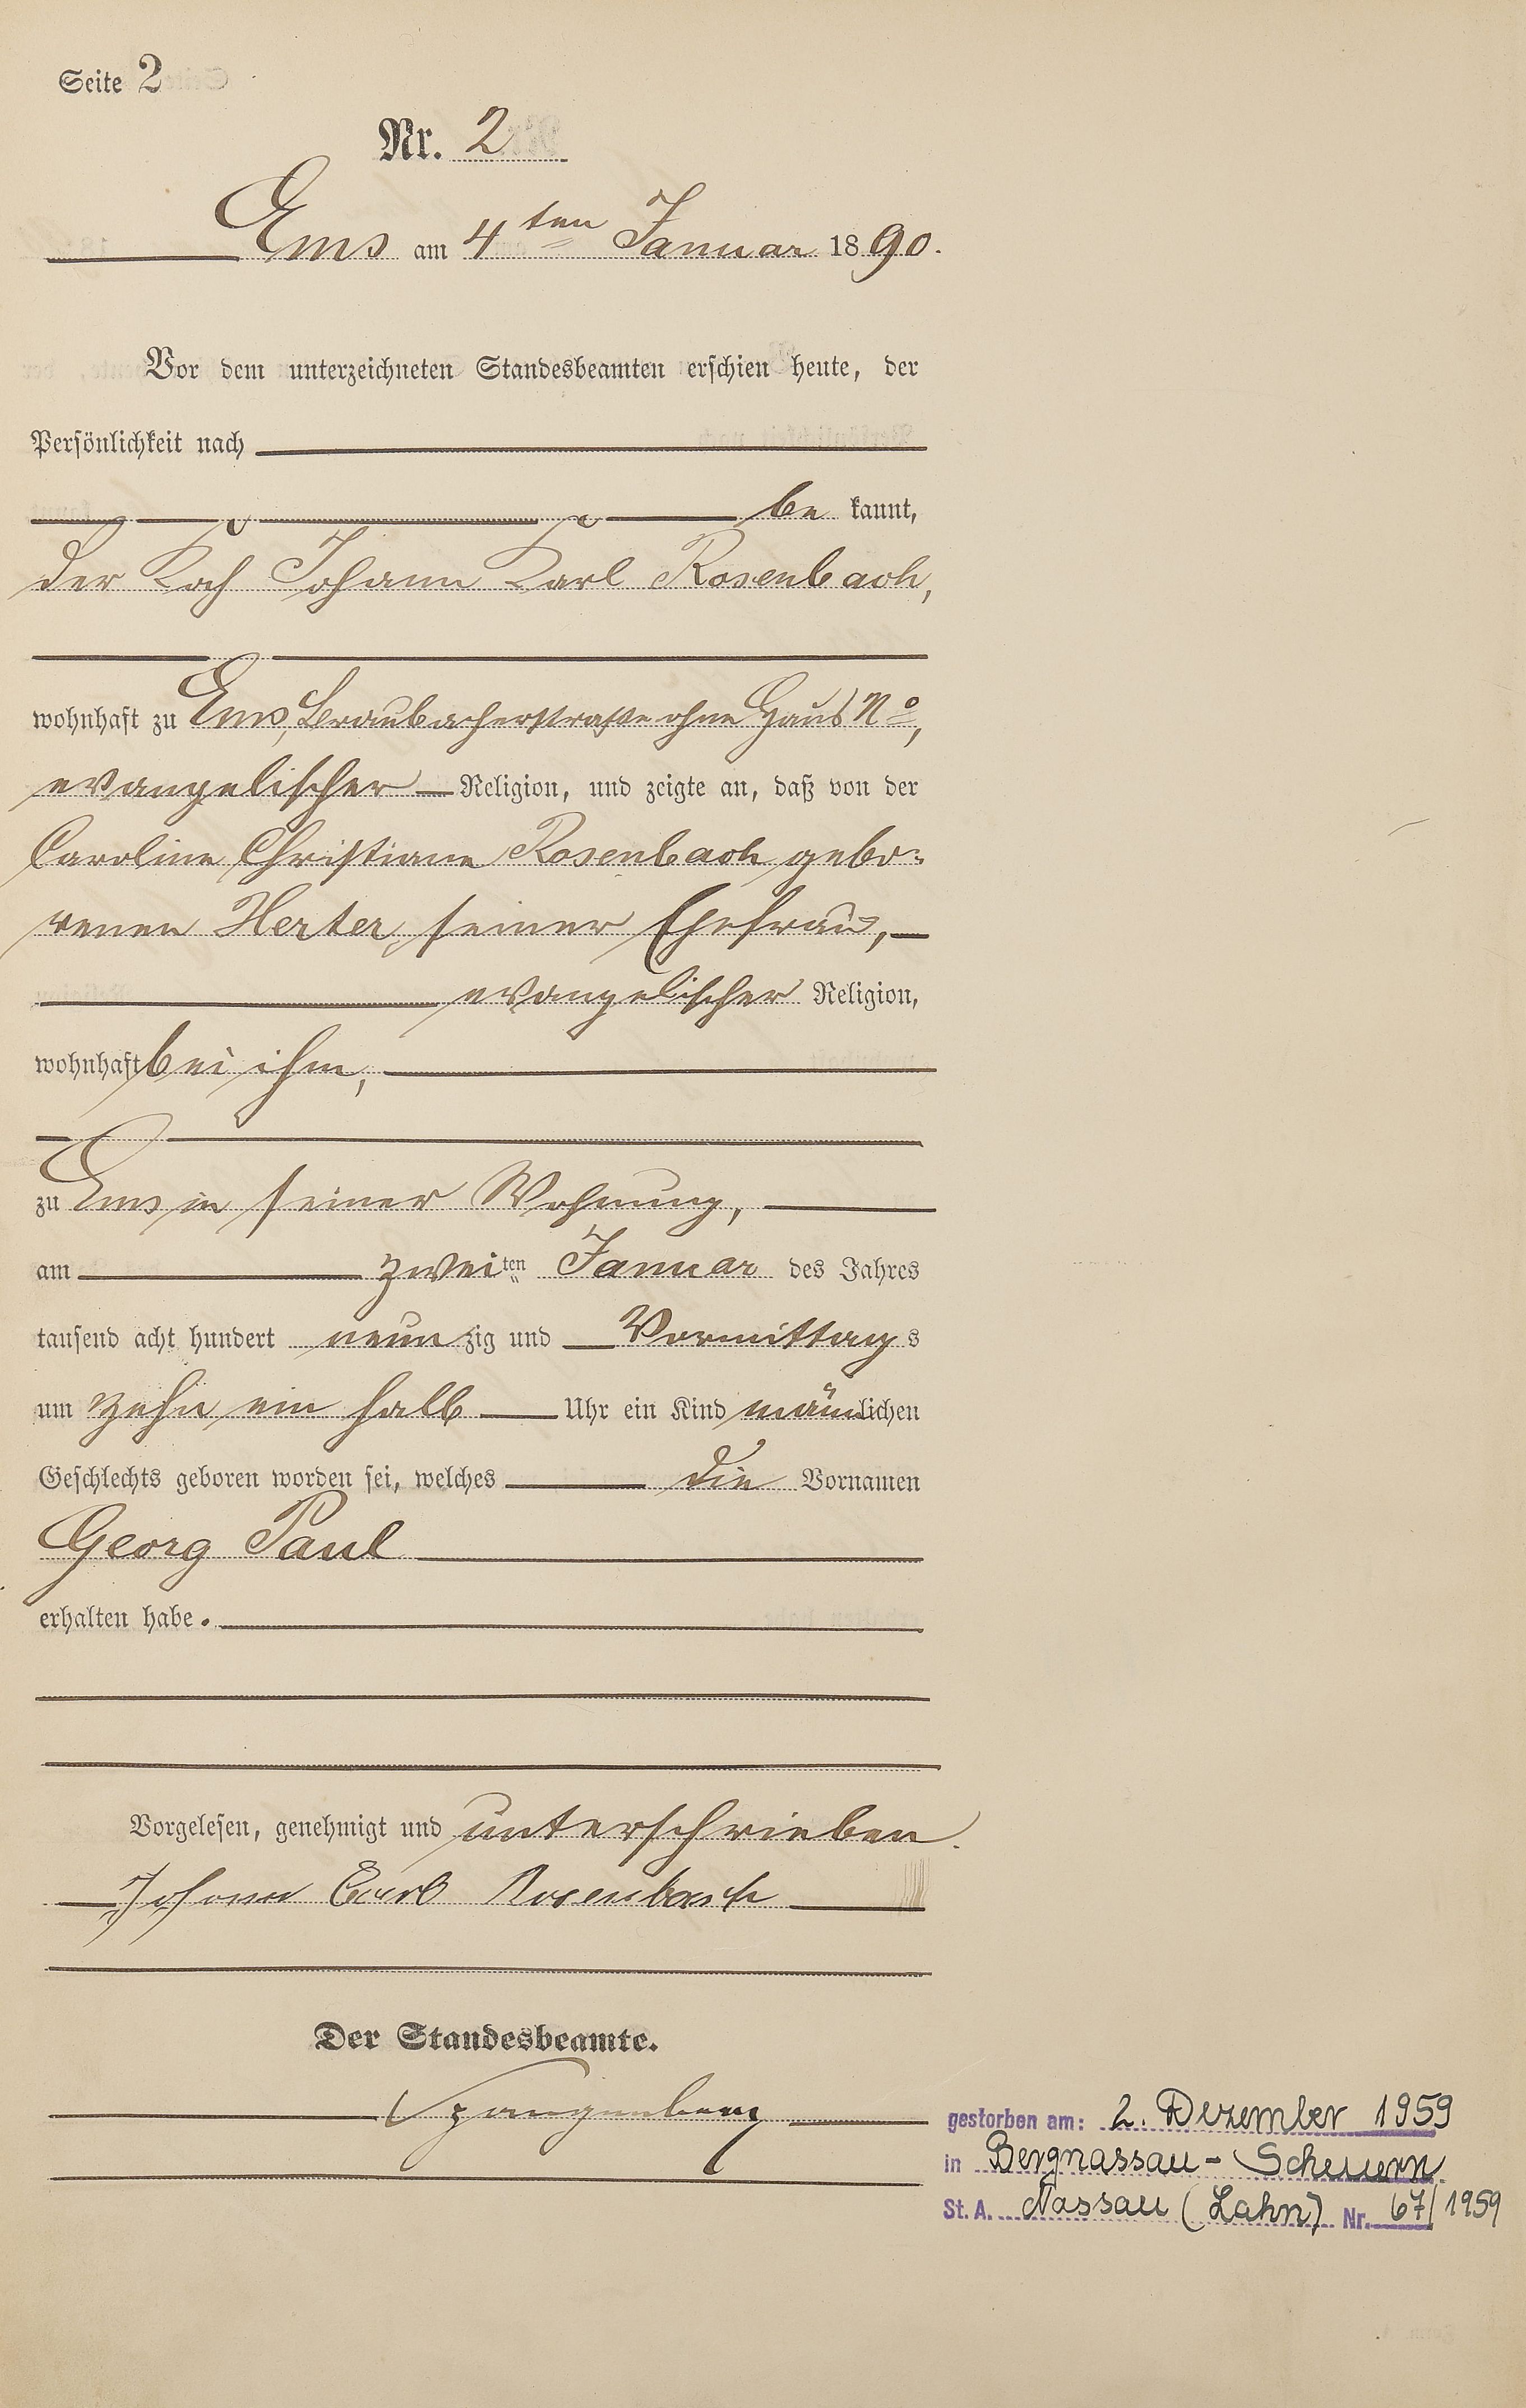 Seite 2
Nr. 2
Ems am 4ten Januar 1890.
Vor dem unterzeichneten Standesbeamten erschien heute, der
Persönlichkeit nach
be kannt,
der Koch Johann Karl Rosenbach,
wohnhaft zu Ems, Braubacherstraße ohne Haus No,
evangelischer Religion, und zeigte an, daß von der
Caroline Christiane Rosenbach gebo-
renen Herter, seiner Ehefrau,
evangelischer Religion,
wohnhaft bei ihm,
zu Ems in seiner Wohnung,
am zweiten Januar des Jahres
tausend acht hundert neunzig und Vormittags
um zehn ein halb Uhr ein Kind männlichen
Geschlechts geboren worden sei, welches die Vornamen
Georg Paul
erhalten habe.
Vorgelesen, genehmigt und unterschrieben.
Johann Carl Rosenbach
Der Standesbeamte.
Spangenberg
gestorben am: 2. Dezember 1959
in Bergnassau-Scheuern
St. A. Nassau (Lahn) Nr. 67/1959